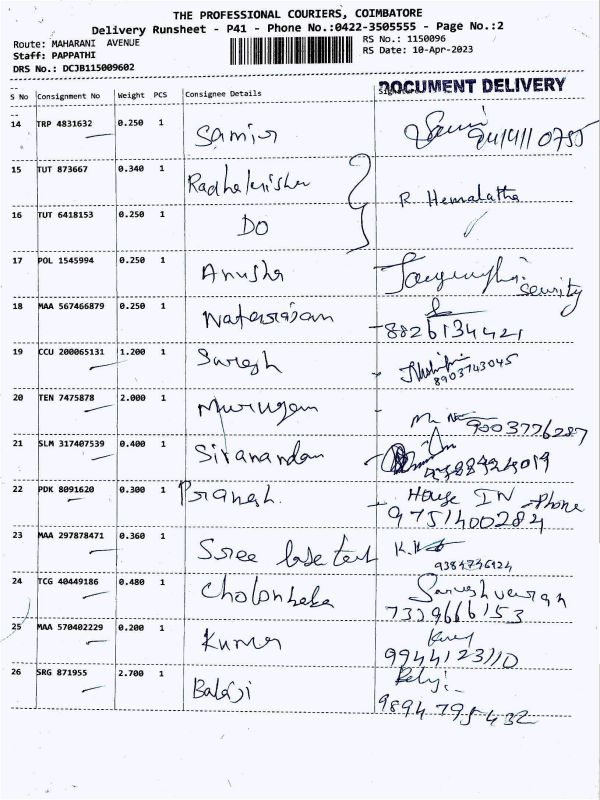 THE PROFESSIONAL COURIERS, COIMBATORE
Delivery Runsheet - P41 - Phone No.:0422-3505555 - Page No.:2
Route: MAHARANI AVENUE
RS No.: 1150096
Staff: PAPPATHI
RS Date: 10-Apr-2023
DRS No.: DCJB115009602
DOCUMENT DELIVERY
S No Consignment No Weight PCS Consignee Details
14 TRP 4831632 0.250 1 Samior
15 TUT 873667 0.340 1 Radhakrishn
R. Hemalatha
16 TUT 6418153 0.250 1 DO
17 POL 1545994 0.250 1 Anusha
Security
18 MAA 567466879 0.250 1 Natarajan
8826134421
19 CCU 200065131 1.200 1 Suregh
8903743045
20 TEN 7475878 2.000 1 Murugan
9003776287
21 SLM 317407539 0.400 1 Sivanandam
22 PDK 8091620 0.300 1 Pranagh.
House IN Phone
9751400284
23 MAA 297878471 0.360 1 Sree
9384736124
24 TCG 40449186 0.480 1
7339666153
25 MAA 570402229 0.200 1 Kumar
9944123110
26 SRG 871955 2.700 1 Balaji
Balaji
9894795432